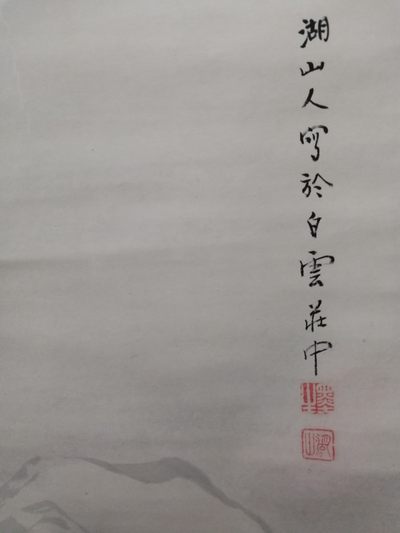 湖山人写於白雲莊中